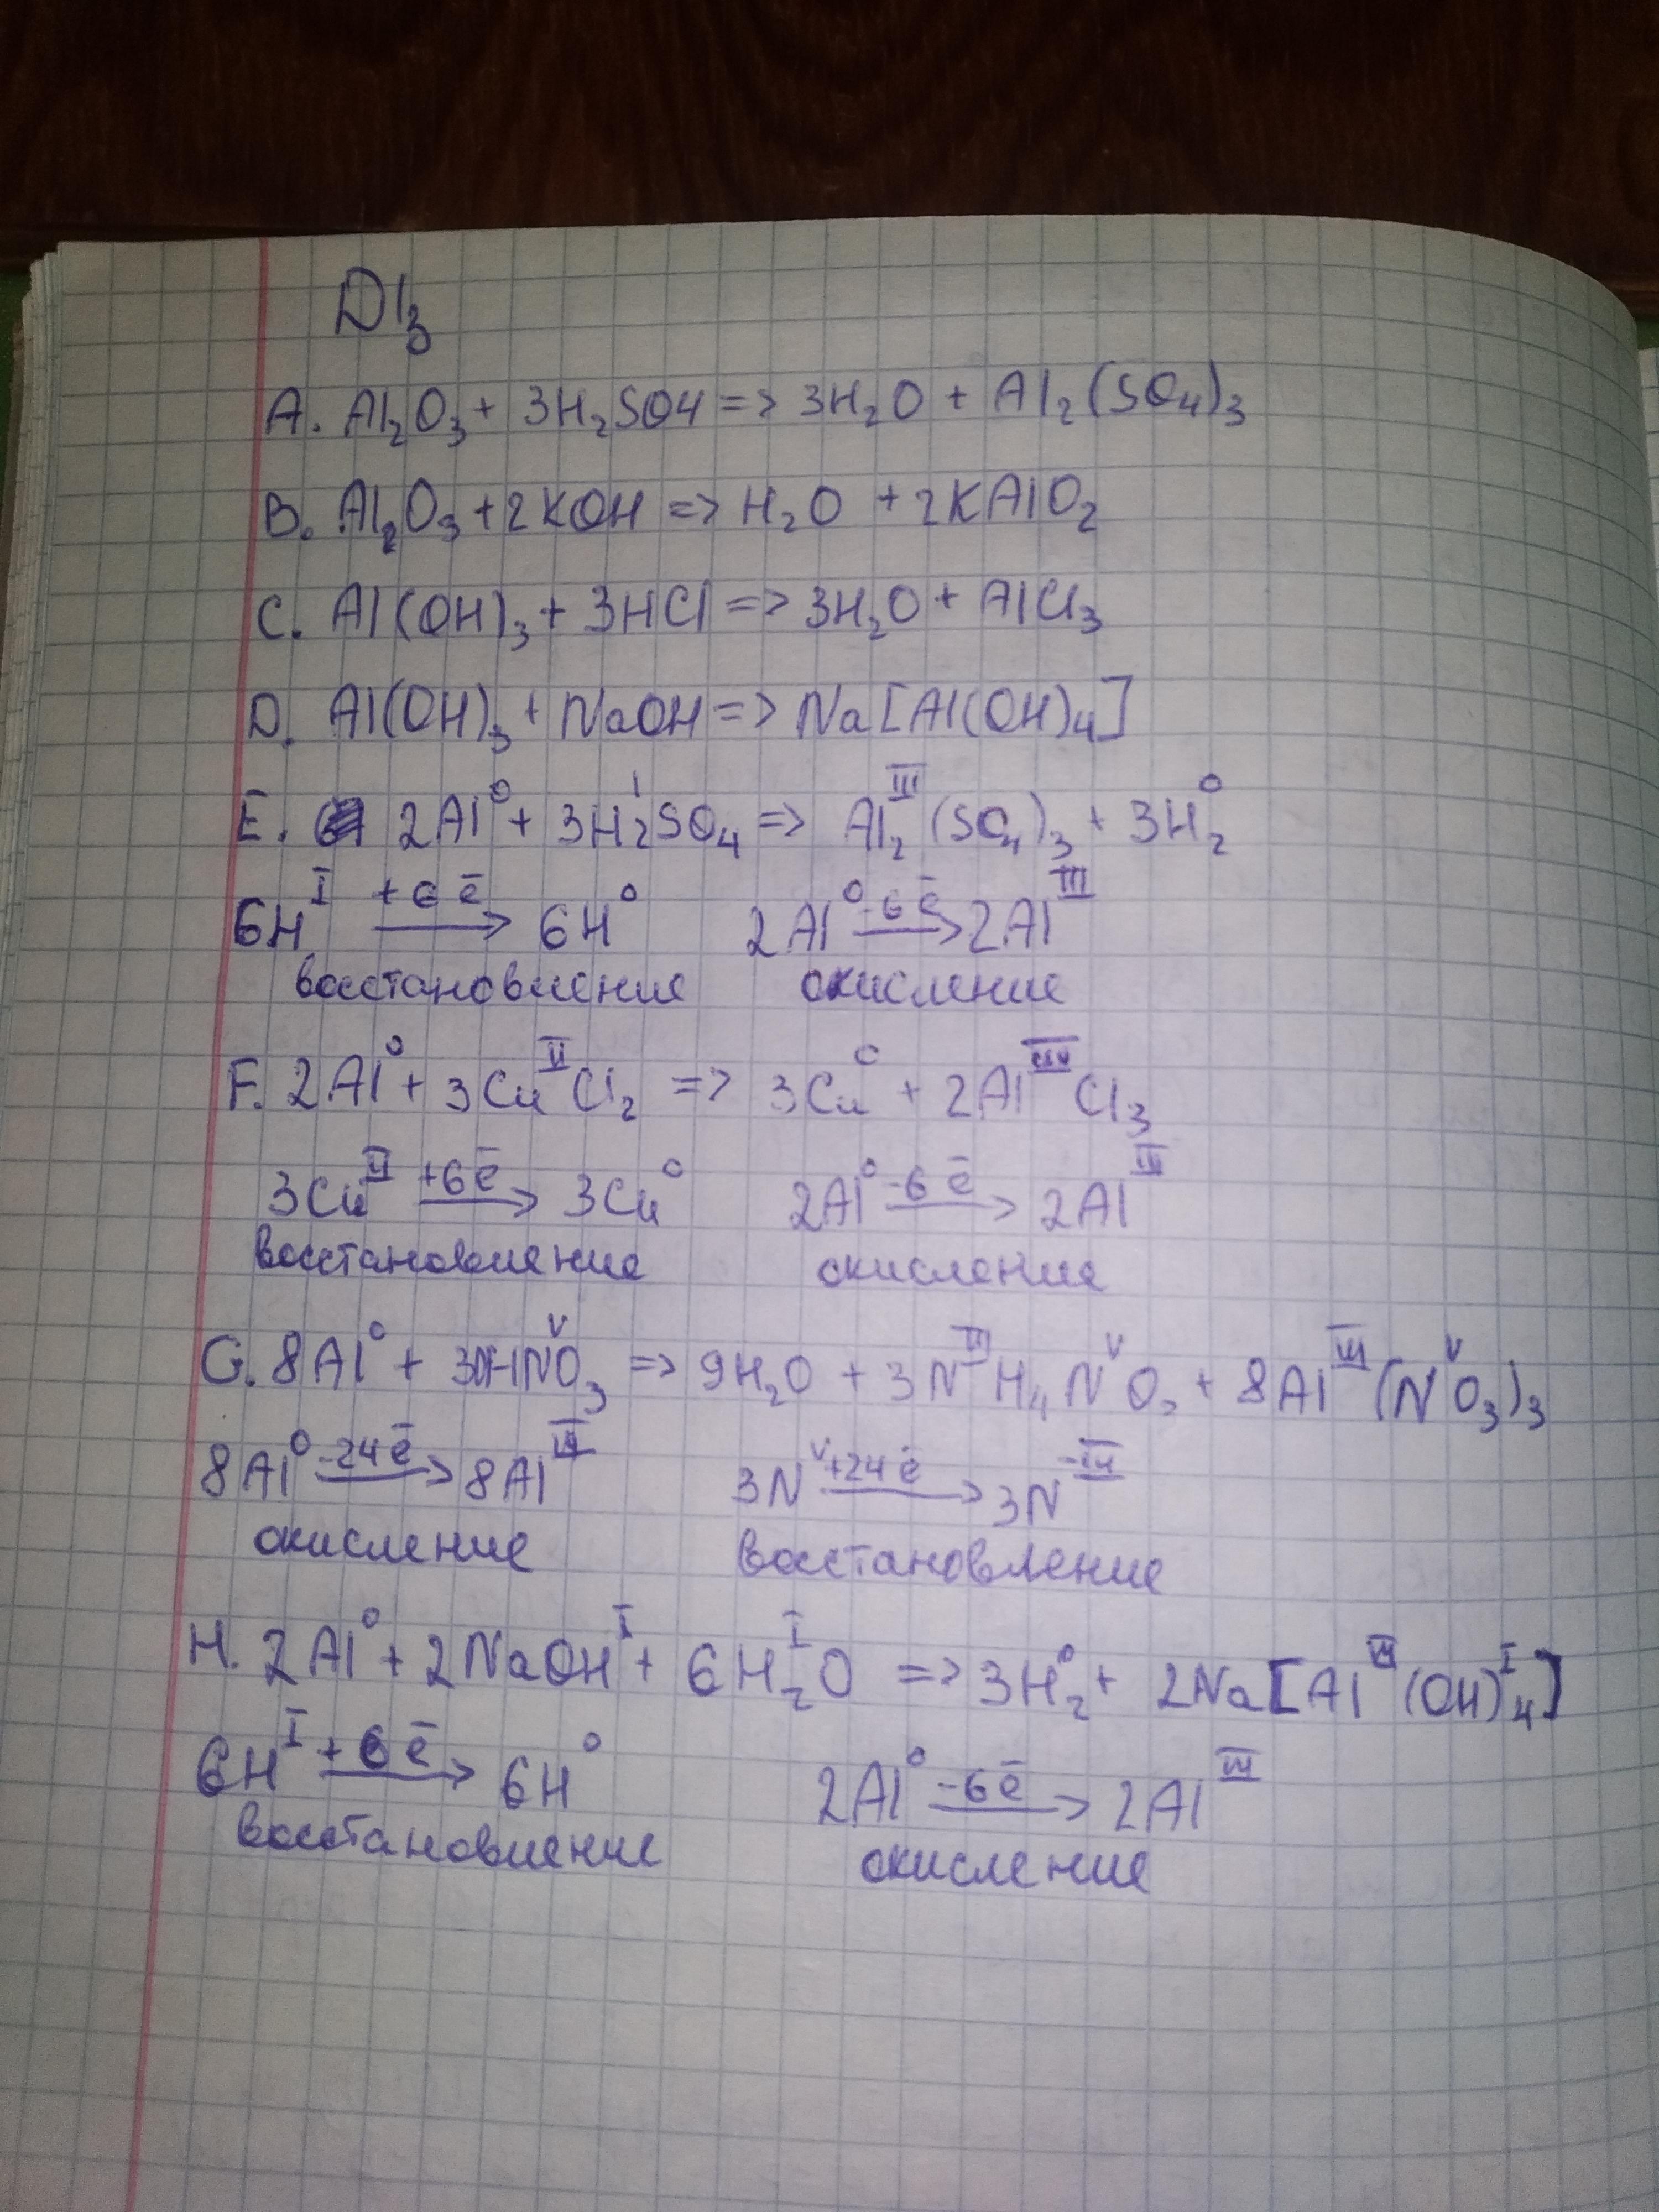 D/з
A. Al₂O₃ + 3H₂SO4 => 3H₂O + Al₂(SO₄)₃
B. Al₂O₃ + 2KOH => H₂O + 2KAlO₂
C. Al(OH)₃ + 3HCl => 3H₂O + AlCl₃
D. Al(OH)₃ + NaOH => Na[Al(OH)₄]
E. 2Al⁰ + 3H₂ᴵSO₄ => Al₂ᴵᴵᴵ(SO₄)₃ + 3H₂⁰
6Hᴵ +6ē → 6H⁰ 2Al⁰ -6ē → 2Alᴵᴵᴵ
восстановление окисление
F. 2Al⁰ + 3CuᴵᴵCl₂ => 3Cu⁰ + 2AlᴵᴵᴵCl₃
3Cuᴵᴵ +6ē → 3Cu⁰ 2Al⁰ -6ē → 2Alᴵᴵᴵ
восстановление окисление
G. 8Al⁰ + HNⱽO₃ => 9H₂O + 3NᴵᴵᴵH₄NⱽO₃ + 8Alᴵᴵᴵ(NⱽO₃)₃
8Al⁰ -24ē → 8Alᴵᴵᴵ 3Nⱽ +24ē → 3N⁻ᴵᴵᴵ
окисление восстановление
H. 2Al⁰ + 2NaOHᴵ + 6H₂ᴵO => 3H₂⁰ + 2Na[Alᴵᴵᴵ(OH)₄ᴵ]
6Hᴵ +6ē → 6H⁰ 2Al⁰ -6ē → 2Alᴵᴵᴵ
восстановление окисление